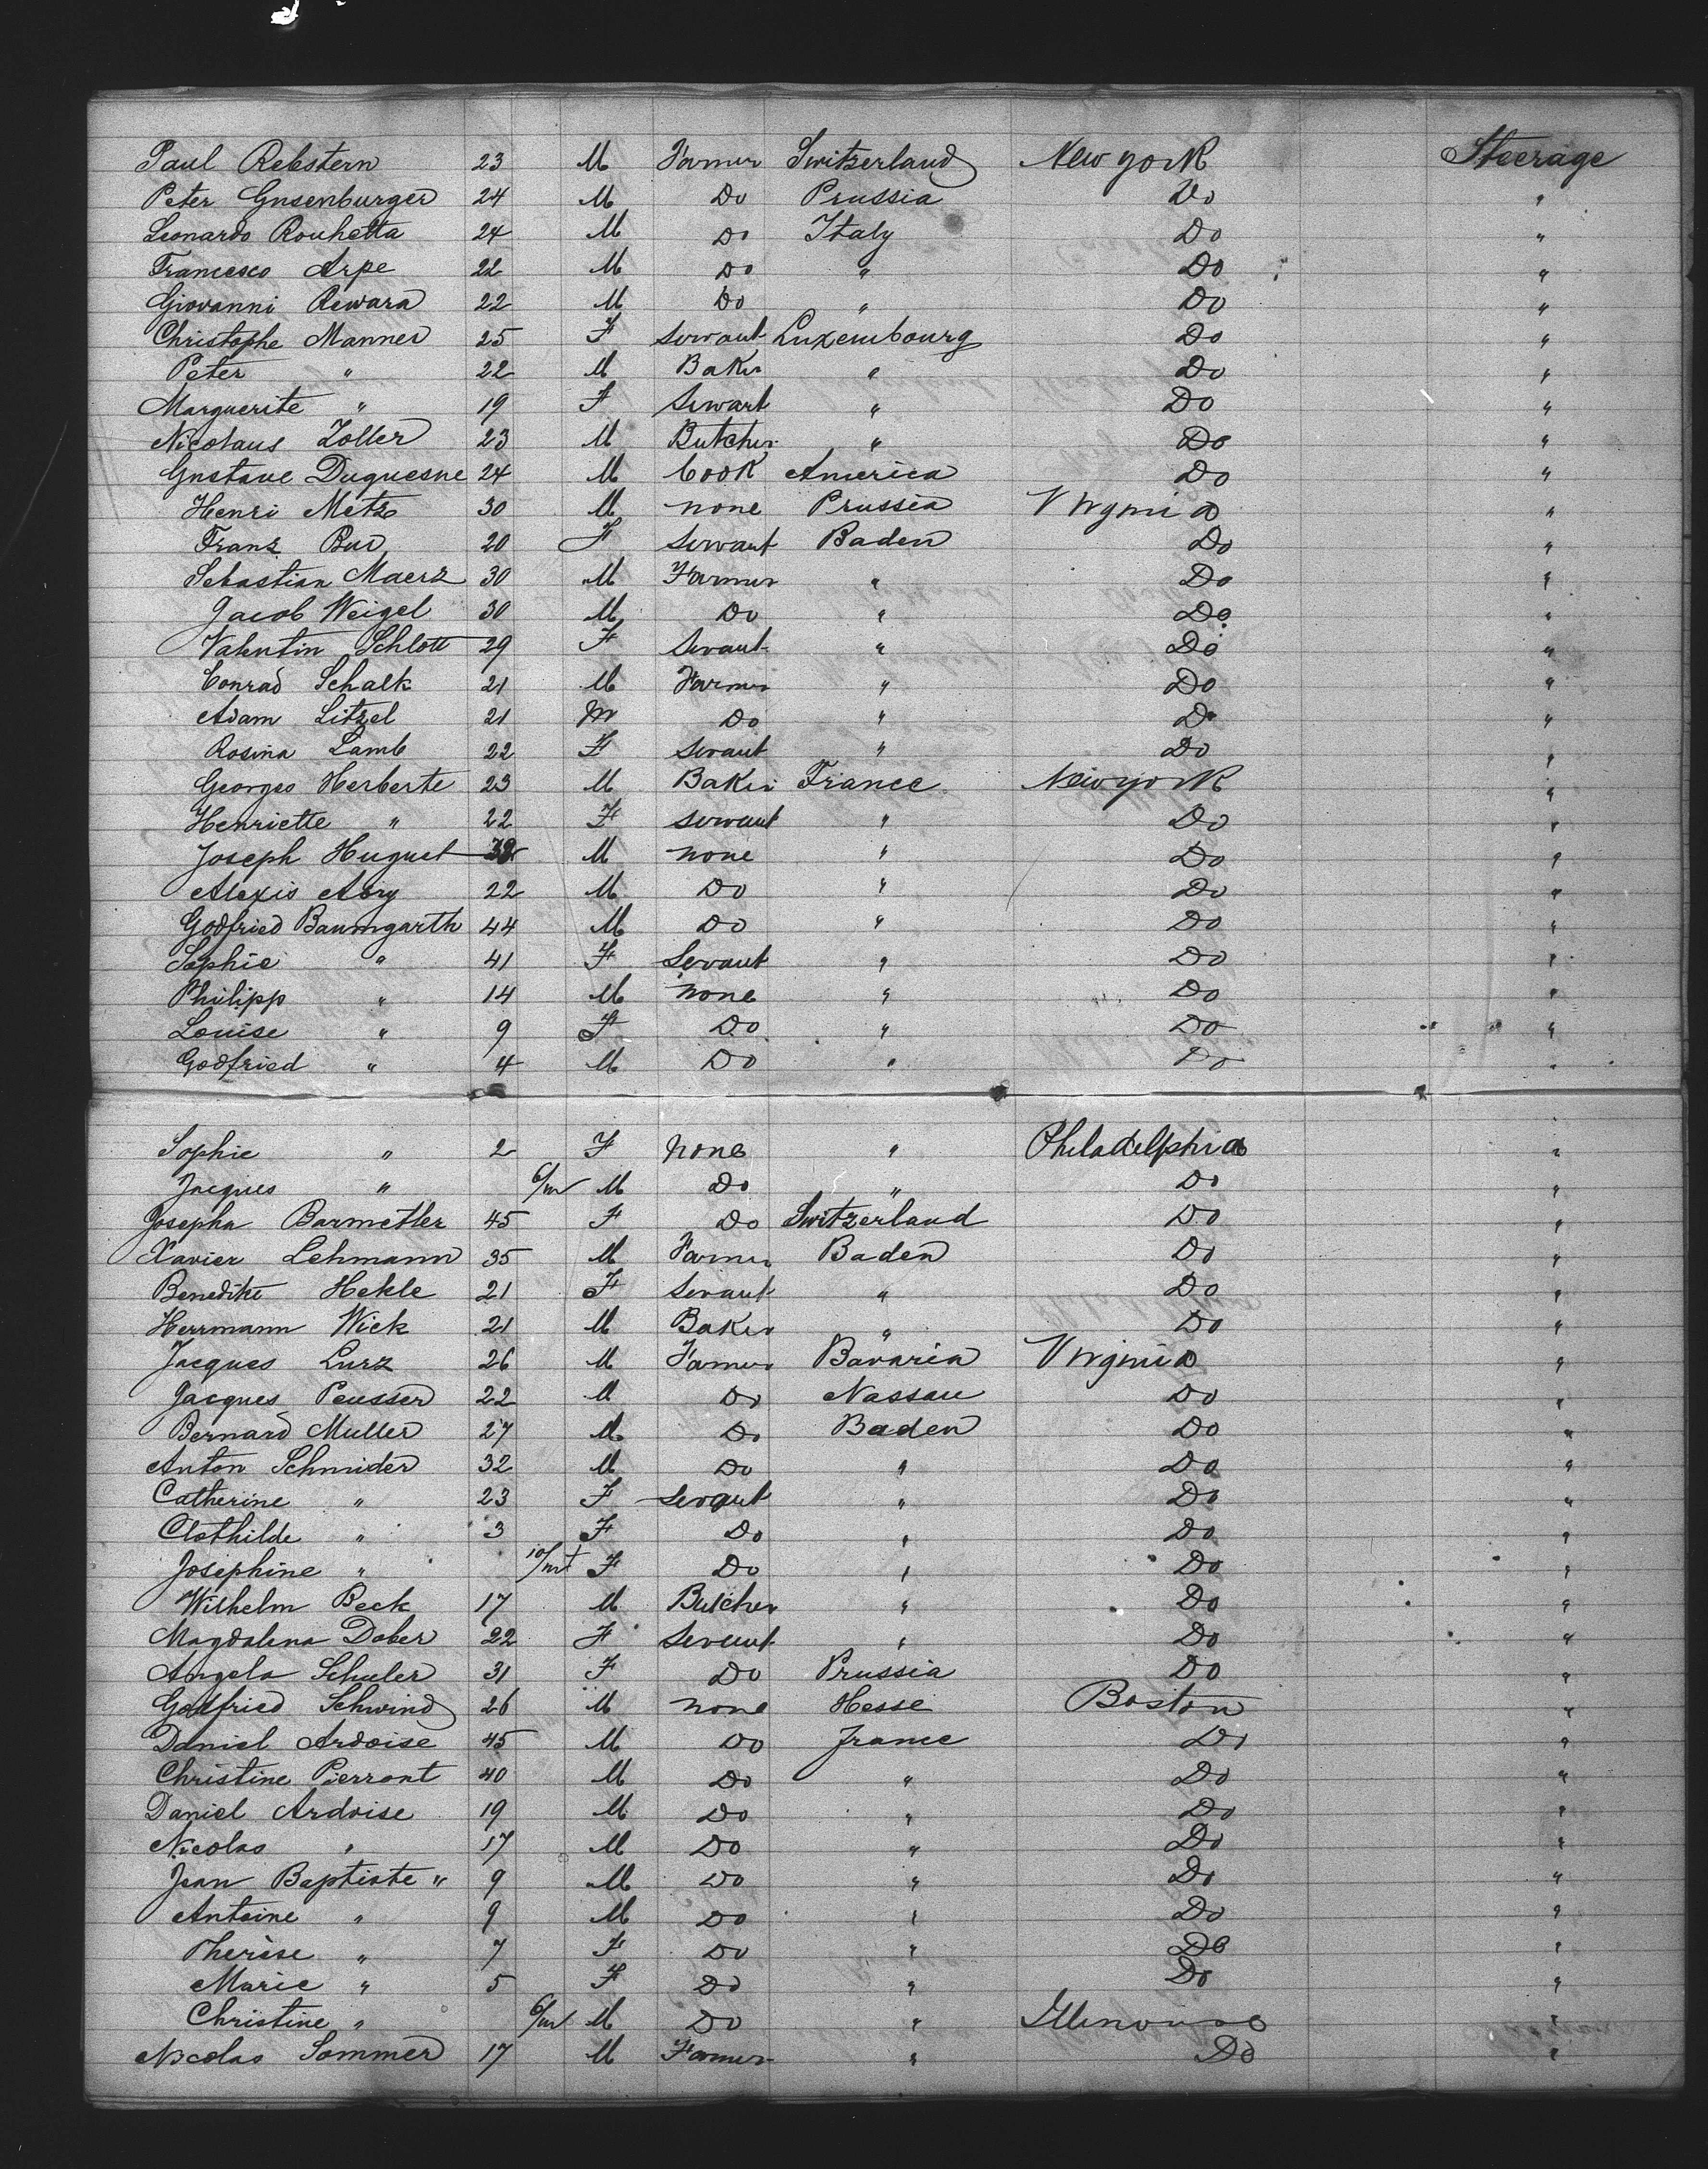 Paul Rebstern 23 M Farmer Switzerland New york Steerage
Peter Gusenburger 24 M Do Prussia Do "
Leonardo Rouhetta 24 M Do Italy Do "
Francesco Arpe 22 M Do " Do "
Giovanni Rewara 22 M Do " Do "
Christophe Manner 25 F Servant Luxembourg Do "
Peter " 22 M Baker " Do "
Marguerite " 19 F Servant " Do "
Nicolaus Zoller 23 M Butcher " Do "
Gustave Duquesne 24 M Cook America Do "
Henri Metz 30 M none Prussia Virginia "
Franz Bur 20 F Servant Baden Do "
Sebastian Maerz 30 M Farmer " Do "
Jacob Weigel 30 M Do " Do "
Valentin Schlott 29 F Servant " Do "
Conrad Schalk 21 M Farmer " Do "
Adam Litzel 21 M Do " Do "
Rosina Lamb 22 F Servant " Do "
Georges Herberte 23 M Baker France New york "
Henriette " 22 F servant " Do "
Joseph Huguet M none " Do "
Alexis 22 M Do " Do "
Godfried Baumgarth 44 M Do " Do "
Sophie " 41 F Servant " Do "
Philipp " 14 M none " Do "
Louise " 9 F Do " Do "
Godfried " 4 M Do " Do "
Sophie " 2 F none " Philadelphia "
Jacques " 6/m M Do " Do "
Josepha Barmetler 45 F Do Switzerland Do "
Xavier Lehmann 35 M Farmer Baden Do "
Benedikte Hekle 21 F Servant " Do "
Herrmann Wick 21 M Baker " Do "
Jacques Lurz 26 M Farmer Bavaria Virginia "
Jacques Peusser 22 M Do Nassau Do "
Bernard Muller 27 M Do Baden Do "
Anton Schmider 32 M Do " Do "
Catherine " 23 F Servant " Do "
Clothilde " 3 F Do " Do "
Josephine " 10/mt F Do " Do "
Wilhelm Beck 17 M Butcher " Do "
Magdalena Dober 22 F Servant " Do "
Angela Schuler 31 F Do Prussia Do "
Godfried Schwind 26 M none Hesse Boston "
Daniel Ardoise 45 M Do France Do "
Christine Pierront 40 M Do " Do "
Daniel Ardoise 19 M Do " Do "
Nicolas " 17 M Do " Do "
Jean Baptiste " 9 M Do " Do "
Antoine " 9 M Do " Do "
Therèse " 7 F Do " Do "
Marie " 5 F Do " Do "
Christine " 6/m M Do " Illinouse "
Nicolas Sommer 17 M Farmer " Do "